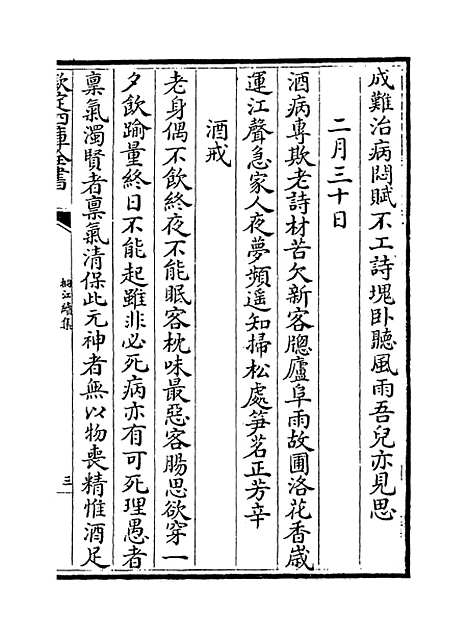 成難治病悶賦不工詩塊卧聽風雨吾兒亦見思
二月三十日
酒病專欺老詩材苦欠新客牕廬阜雨故圃洛花香歲
運江聲急家人夜夢頻遥知掃松處笋茗正芳辛
酒戒
老身偶不飲終夜不能眠客枕味最惡客腸思欲穿一
夕飲踰量終日不能起雖非必死病亦有可死理愚者
稟氣濁賢者稟氣清保此元神者無以物喪精惟酒足
欽定四庫全書
桐江續集
三